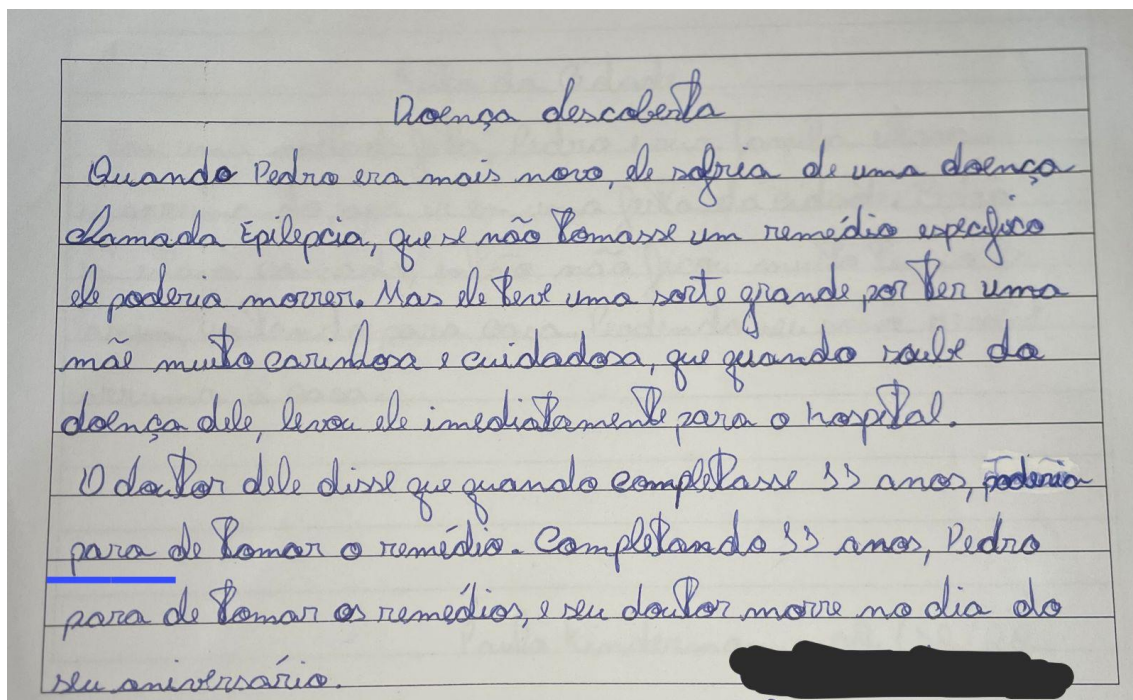 Doença descoberta
Quando Pedro era mais novo, ele sofria de uma doença
chamada Epilepcia, que se não tomasse um remédio específico
ele poderia morrer. Mas ele teve uma sorte grande por ter uma
mãe muito carinhosa e cuidadosa, que quando soube da
doença dele, levou ele imediatamente para o hospital.
O doutor dele disse que quando completasse 11 anos, poderia
para de tomar o remédio. Completando 11 anos, Pedro
para de tomar os remédios, e seu doutor morre no dia do
seu aniversário.